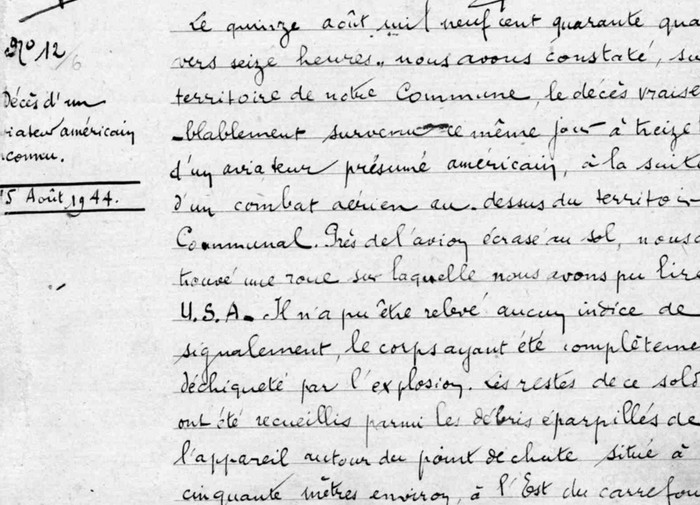 No 12
Décès d'un
viateur américain
connu.
15 Août 1944.
Le quinze août mil neuf cent quarante qua
vers seize heures, nous avons constaté, su
territoire de notre Commune, le décès vraise
-blablement survenu ce même jour à treize
d'un aviateur présumé américain, à la suite
d'un combat aérien au-dessus du territoi
Communal. Près de l'avion écrasé au sol, nous
trouvé une roue sur laquelle nous avons pu lire
U.S.A. Il n'a pu être relevé aucun indice de
signalement, le corps ayant été complèteme
déchiqueté par l'explosion. Les restes de ce sold
ont été recueillis parmi les débris éparpillés de
l'appareil autour du point de chute situé à
cinquante mètres environ, à l'Est du carrefou